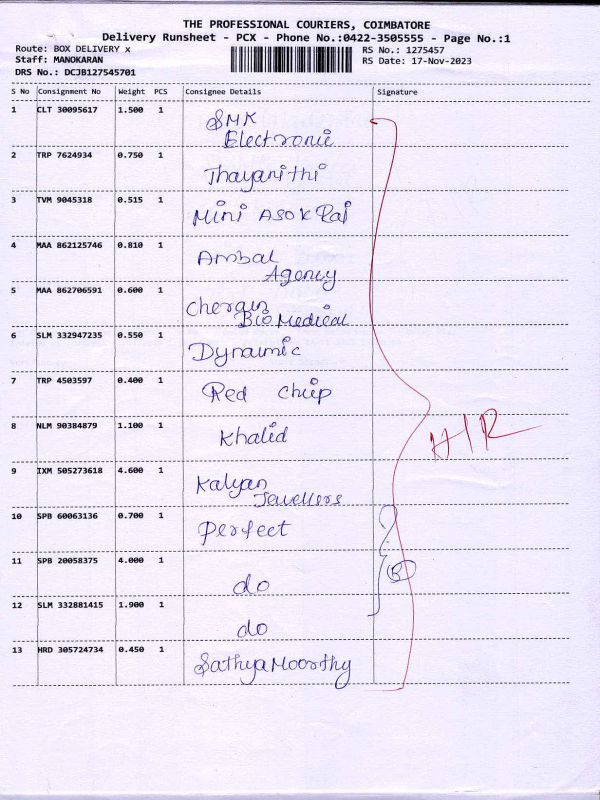 THE PROFESSIONAL COURIERS, COIMBATORE
Delivery Runsheet - PCX - Phone No.:0422-3505555 - Page No.:1
Route: BOX DELIVERY x
Staff: MANOKARAN
DRS No.: DCJB127545701
RS No.: 1275457
RS Date: 17-Nov-2023
S No Consignment No Weight PCS Consignee Details Signature
1 CLT 30095617 1.500 1 SMK
Electronic
2 TRP 7624934 0.750 1 Thayanithi
3 TVM 9045318 0.515 1 Mini ASOK Raj
4 MAA 862125746 0.810 1 Ambal
Agency
5 MAA 862706591 0.600 1 Cheran
Bio Medical
6 SLM 332947235 0.550 1 Dynamic
7 TRP 4503597 0.400 1 Red Chip
8 NLM 90384879 1.100 1 Khalid
H/R
9 IXM 505273618 4.600 1 Kalyan
Jewellers
10 SPB 60063136 0.700 1 Perfect
11 SPB 20058375 4.000 1 do
12 SLM 332881415 1.900 1 do
13 HRD 305724734 0.450 1 Sathya Moorthy